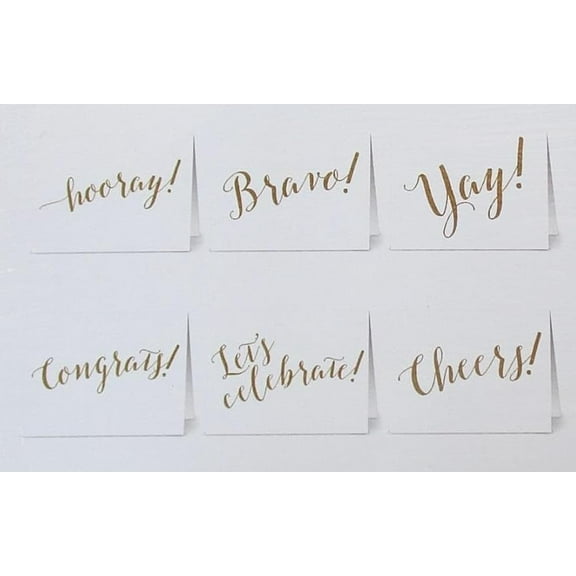 hooray!
Bravo!
Yay!
Congrats!
Let's
celebrate!
Cheers!